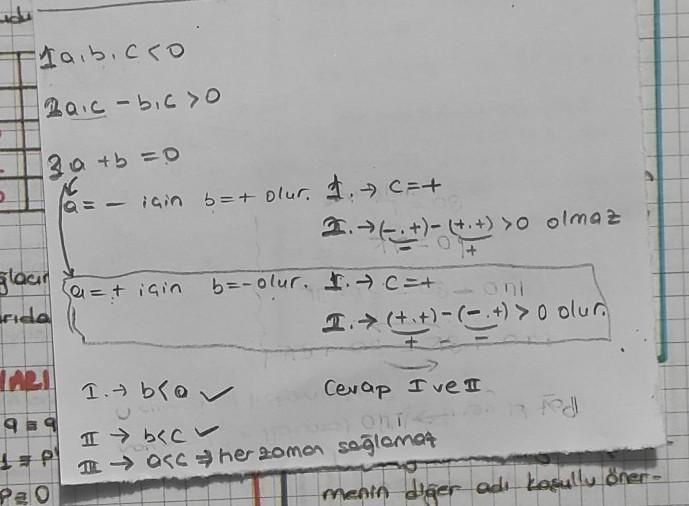 1 a.b.c < 0
2 a.c - b.c > 0
3 a + b = 0
a = - için b = + olur. I. → c = +
II. → (-.+) - (+.+) > 0 olmaz
- +
a = + için b = - olur. I. → c = +
II. → (+.+) - (-.+) > 0 olur.
+ -
I. → b < a ✓ Cevap I ve II
II → b < c ✓
III → a < c ⇒ her zaman sağlamaz
menin diğer adı koşullu öner-